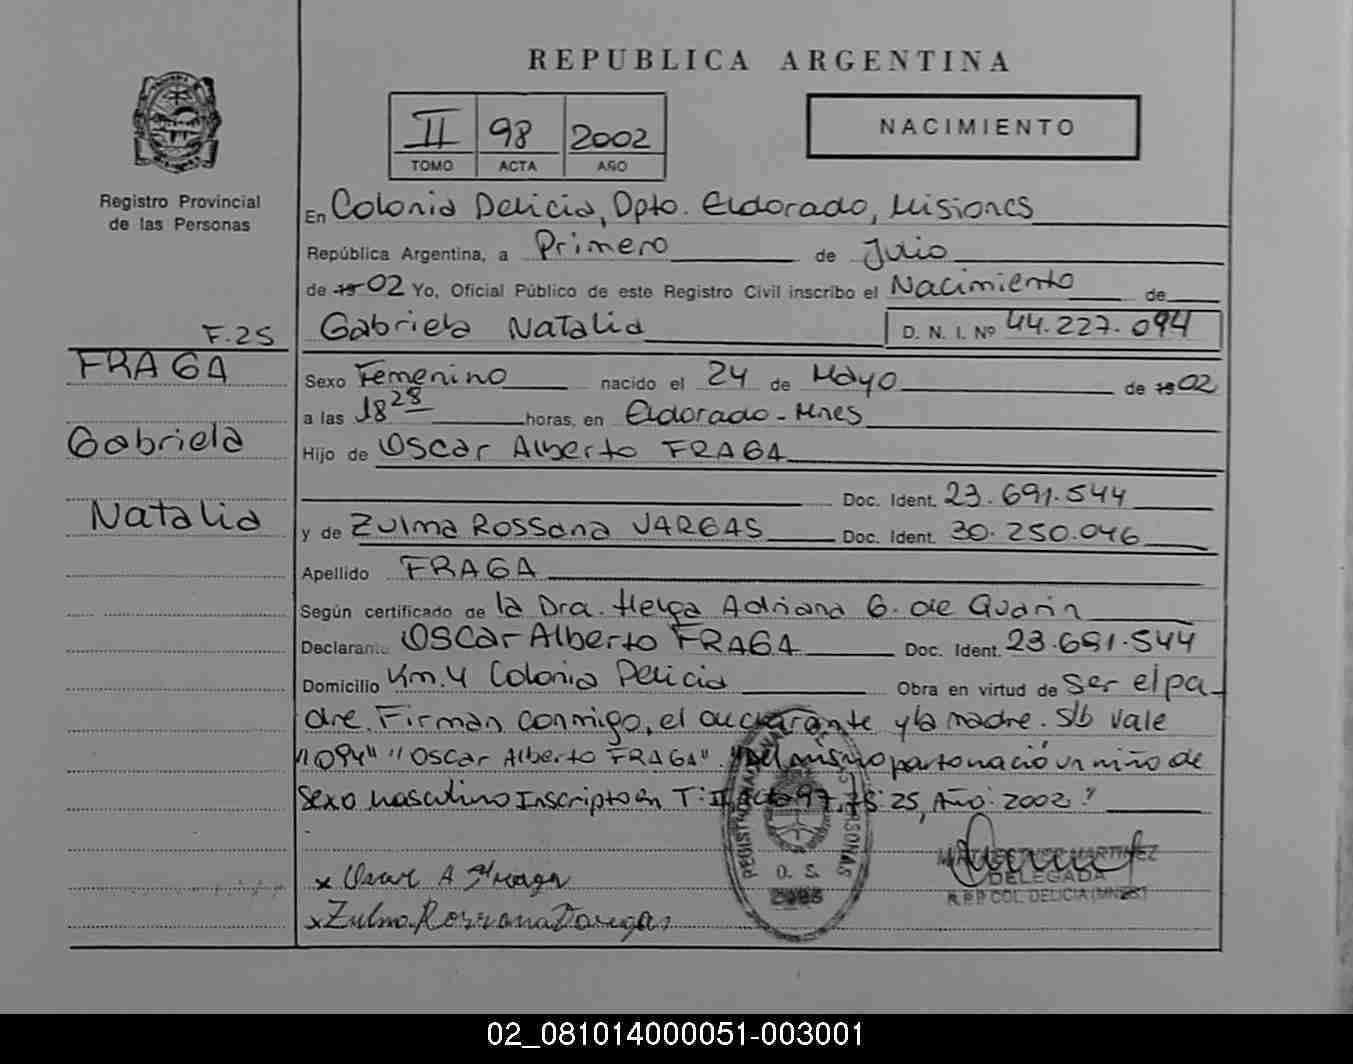 REPUBLICA ARGENTINA
II 98 2002
TOMO ACTA AÑO
NACIMIENTO
Registro Provincial
de las Personas
En Colonia Delicia, Dpto. Eldorado, Misiones
República Argentina, a Primero de Julio
de 19 02 Yo, Oficial Público de este Registro Civil inscribo el Nacimiento de
Gabriela Natalia D. N. I. Nº 44.227.094
F.25
FRAGA
Gabriela
Natalia
Sexo Femenino nacido el 24 de Mayo de 19 02
a las 18 28 horas, en Eldorado - Mnes
Hijo de Oscar Alberto FRAGA
Doc. Ident. 23.691.544
y de Zulma Rossana VARGAS Doc. Ident. 30.250.046
Apellido FRAGA
Según certificado de la Dra. Helga Adriana G. de Guarin
Declarante Oscar Alberto FRAGA Doc. Ident. 23.691.544
Domicilio Km. 4 Colonia Delicia Obra en virtud de ser el pa_
dre. Firman conmigo, el declarante y la madre. S/b vale
"094" "Oscar Alberto FRAGA". "Del mismo parto nació un niño de
sexo masculino Inscripto en T: II, Acta 97, Fs: 25, Año: 2002."
x Oscar A Fraga
x Zulma Rossana Vargas
PERSONAS
D. S.
MARTINEZ
DELEGADA
R.P.P COL. DELICIA (MNES)
02_081014000051-003001